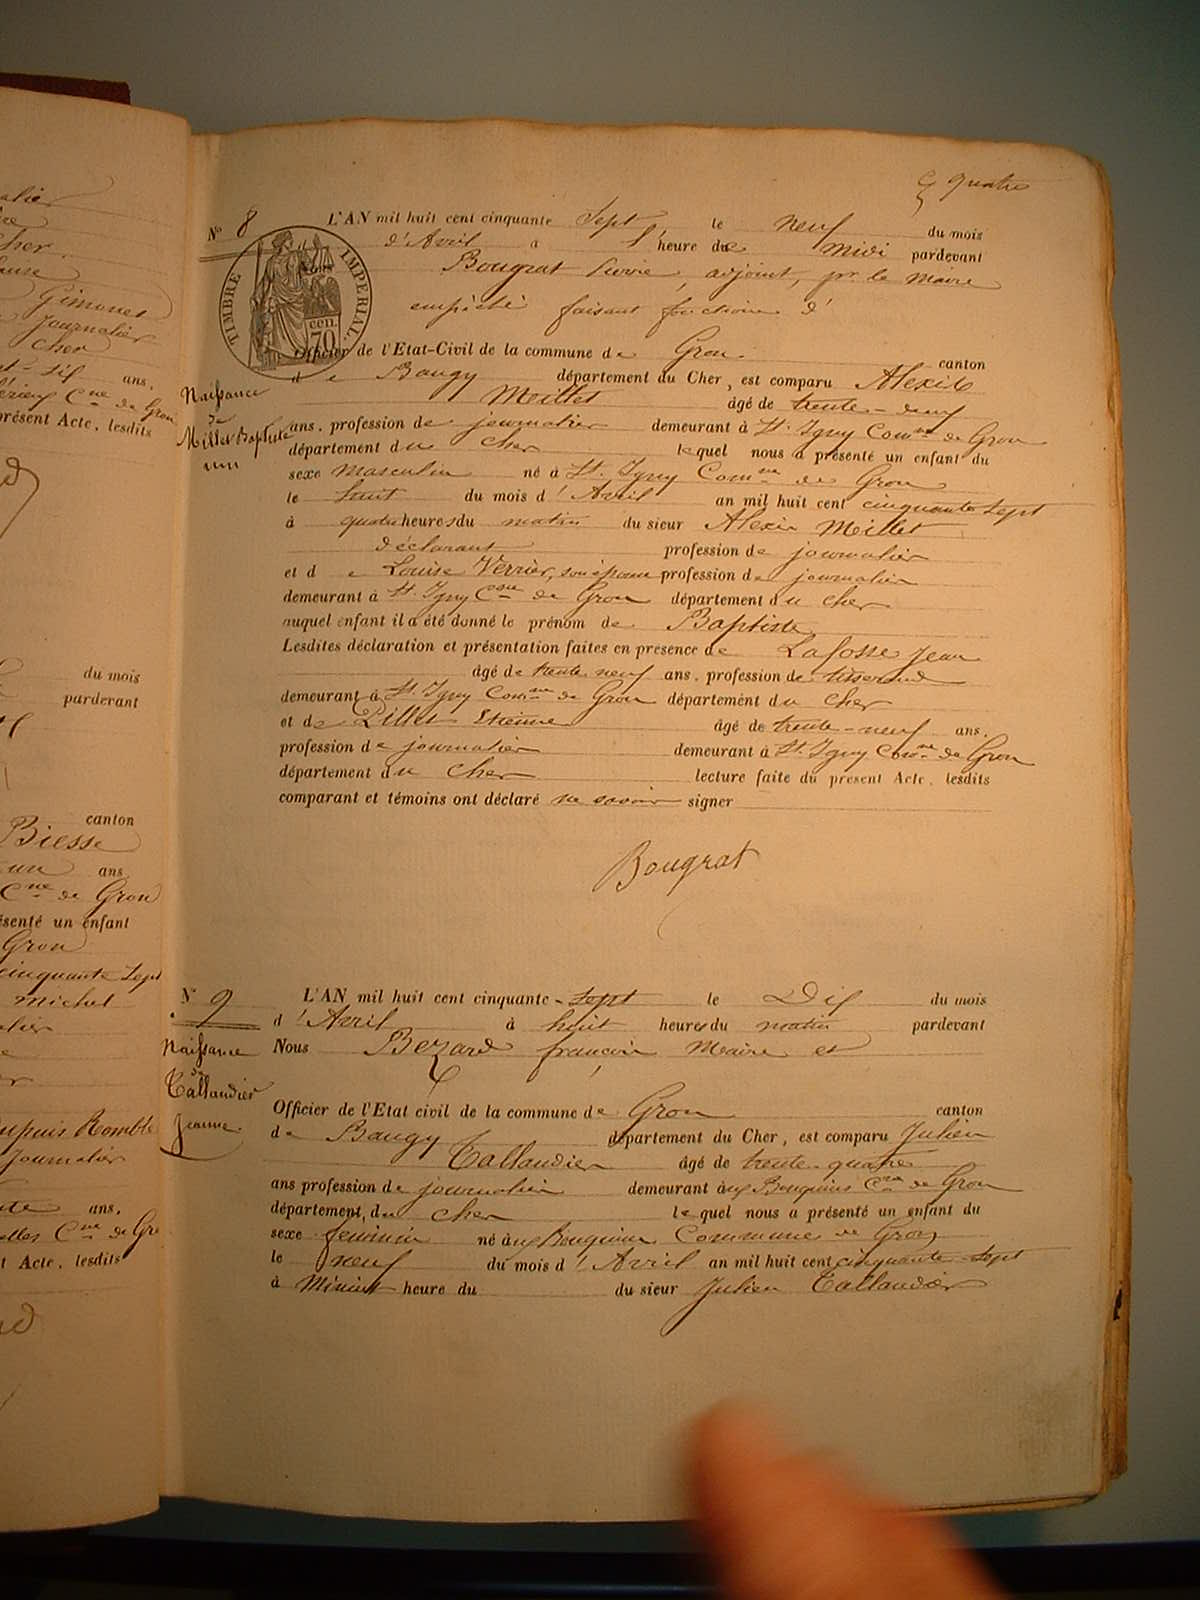 quatre
N° 8
TIMBRE IMPERIAL.
CEN. 70
L'AN mil huit cent cinquante Sept le neuf du mois
d'Avril à l'heure de midi pardevant
Nous Bougrat adjoint, pr. le Maire
empêché faisant fonctions d'
Officier de l'Etat-Civil de la commune de Gron canton
de Baugy département du Cher, est comparu Alexis
Meillet âgé de trente-neuf
ans, profession de journalier demeurant à St. Igny Comne de Gron
département du Cher lequel nous a présenté un enfant du
sexe masculin né à St. Igny Comne de Gron
le huit du mois d'Avril an mil huit cent cinquante sept
à quatre heures du matin du sieur Alexis Meillet
déclarant profession de journalier
et de Louise Verrier, son épouse profession de journalier
demeurant à St. Igny Cne de Gron département du Cher
auquel enfant il a été donné le prénom de Baptiste
Lesdites déclaration et présentation faites en présence de Lafosse Jean
âgé de trente neuf ans, profession de tisserand
demeurant à St. Igny Comne de Gron département du Cher
et de Pillet Etienne âgé de trente-neuf ans.
profession de journalier demeurant à St. Igny Comne de Gron
département du Cher lecture faite du présent Acte, lesdits
comparant et témoins ont déclaré ne savoir signer
Bougrat
Naissance
de
Millet Baptiste
N° 9
Naissance
de
Tallaudier
Jeanne
L'AN mil huit cent cinquante-sept le Dix du mois
d'Avril à huit heures du matin pardevant
Nous Bezard françois Maire et
Officier de l'Etat civil de la commune de Gron canton
de Baugy département du Cher, est comparu Julien
Tallaudier âgé de trente-quatre
ans profession de journalier demeurant aux Cne de Gron
département, du Cher lequel nous a présenté un enfant du
sexe feminin né aux Commune de Gron
le neuf du mois d'Avril an mil huit cent cinquante-sept
à Minuit heure du du sieur Julien Tallaudier
Gimonet
Journalier
Cher
ans.
Cne de Gron
présent Acte, lesdits
du mois
pardevant
canton
Biesse
un ans
Cne de Gron
un enfant
Gron
cinquante sept
michel
Journalier
ans.
Cne de Gro
Acte, lesdits